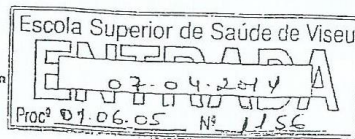 Escola Superior de Saúde de Viseu
ENTRADA
07.04.2014
Procº 07.06.05 Nº 1156